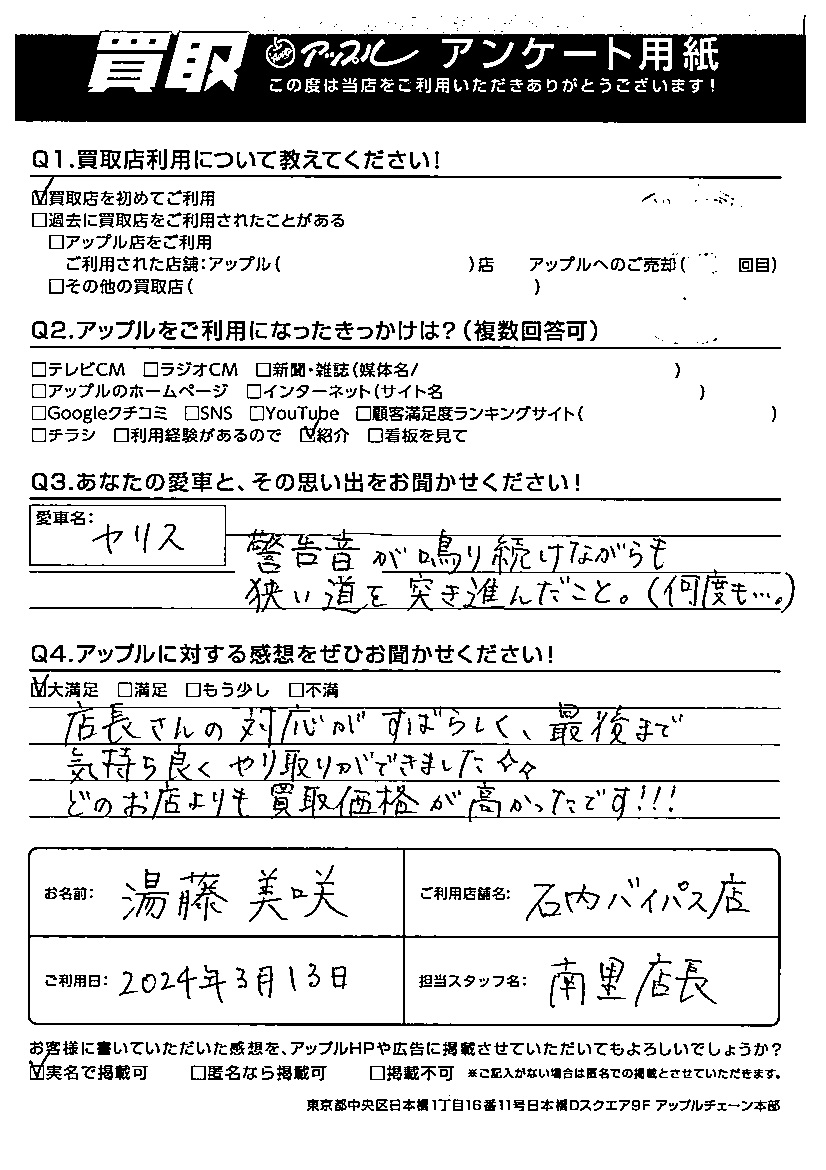 買取 アップル アンケート用紙
この度は当店をご利用いただきありがとうございます!
Q1.買取店利用について教えてください!
☑買取店を初めてご利用
□過去に買取店をご利用されたことがある
□アップル店をご利用
ご利用された店舗:アップル( )店 アップルへのご売却( 回目)
□その他の買取店( )
Q2.アップルをご利用になったきっかけは?(複数回答可)
□テレビCM □ラジオCM □新聞・雑誌(媒体名/ )
□アップルのホームページ □インターネット(サイト名 )
□Googleクチコミ □SNS □YouTube □顧客満足度ランキングサイト( )
□チラシ □利用経験があるので ☑紹介 □看板を見て
Q3.あなたの愛車と、その思い出をお聞かせください!
愛車名: ヤリス
警告音が鳴り続けながらも
狭い道を突き進んだこと。(何度も…。)
Q4.アップルに対する感想をぜひお聞かせください!
☑大満足 □満足 □もう少し □不満
店長さんの対応がすばらしく、最後まで
気持ち良くやり取りができました☆☆
どのお店よりも買取価格が高かったです!!!
お名前: 湯藤 美咲 ご利用店舗名: 石内バイパス店
ご利用日: 2024年3月13日 担当スタッフ名: 南里店長
お客様に書いていただいた感想を、アップルHPや広告に掲載させていただいてもよろしいでしょうか?
☑実名で掲載可 □匿名なら掲載可 □掲載不可 ※ご記入がない場合は匿名での掲載とさせていただきます。
東京都中央区日本橋1丁目16番11号日本橋Dスクエア9F アップルチェーン本部